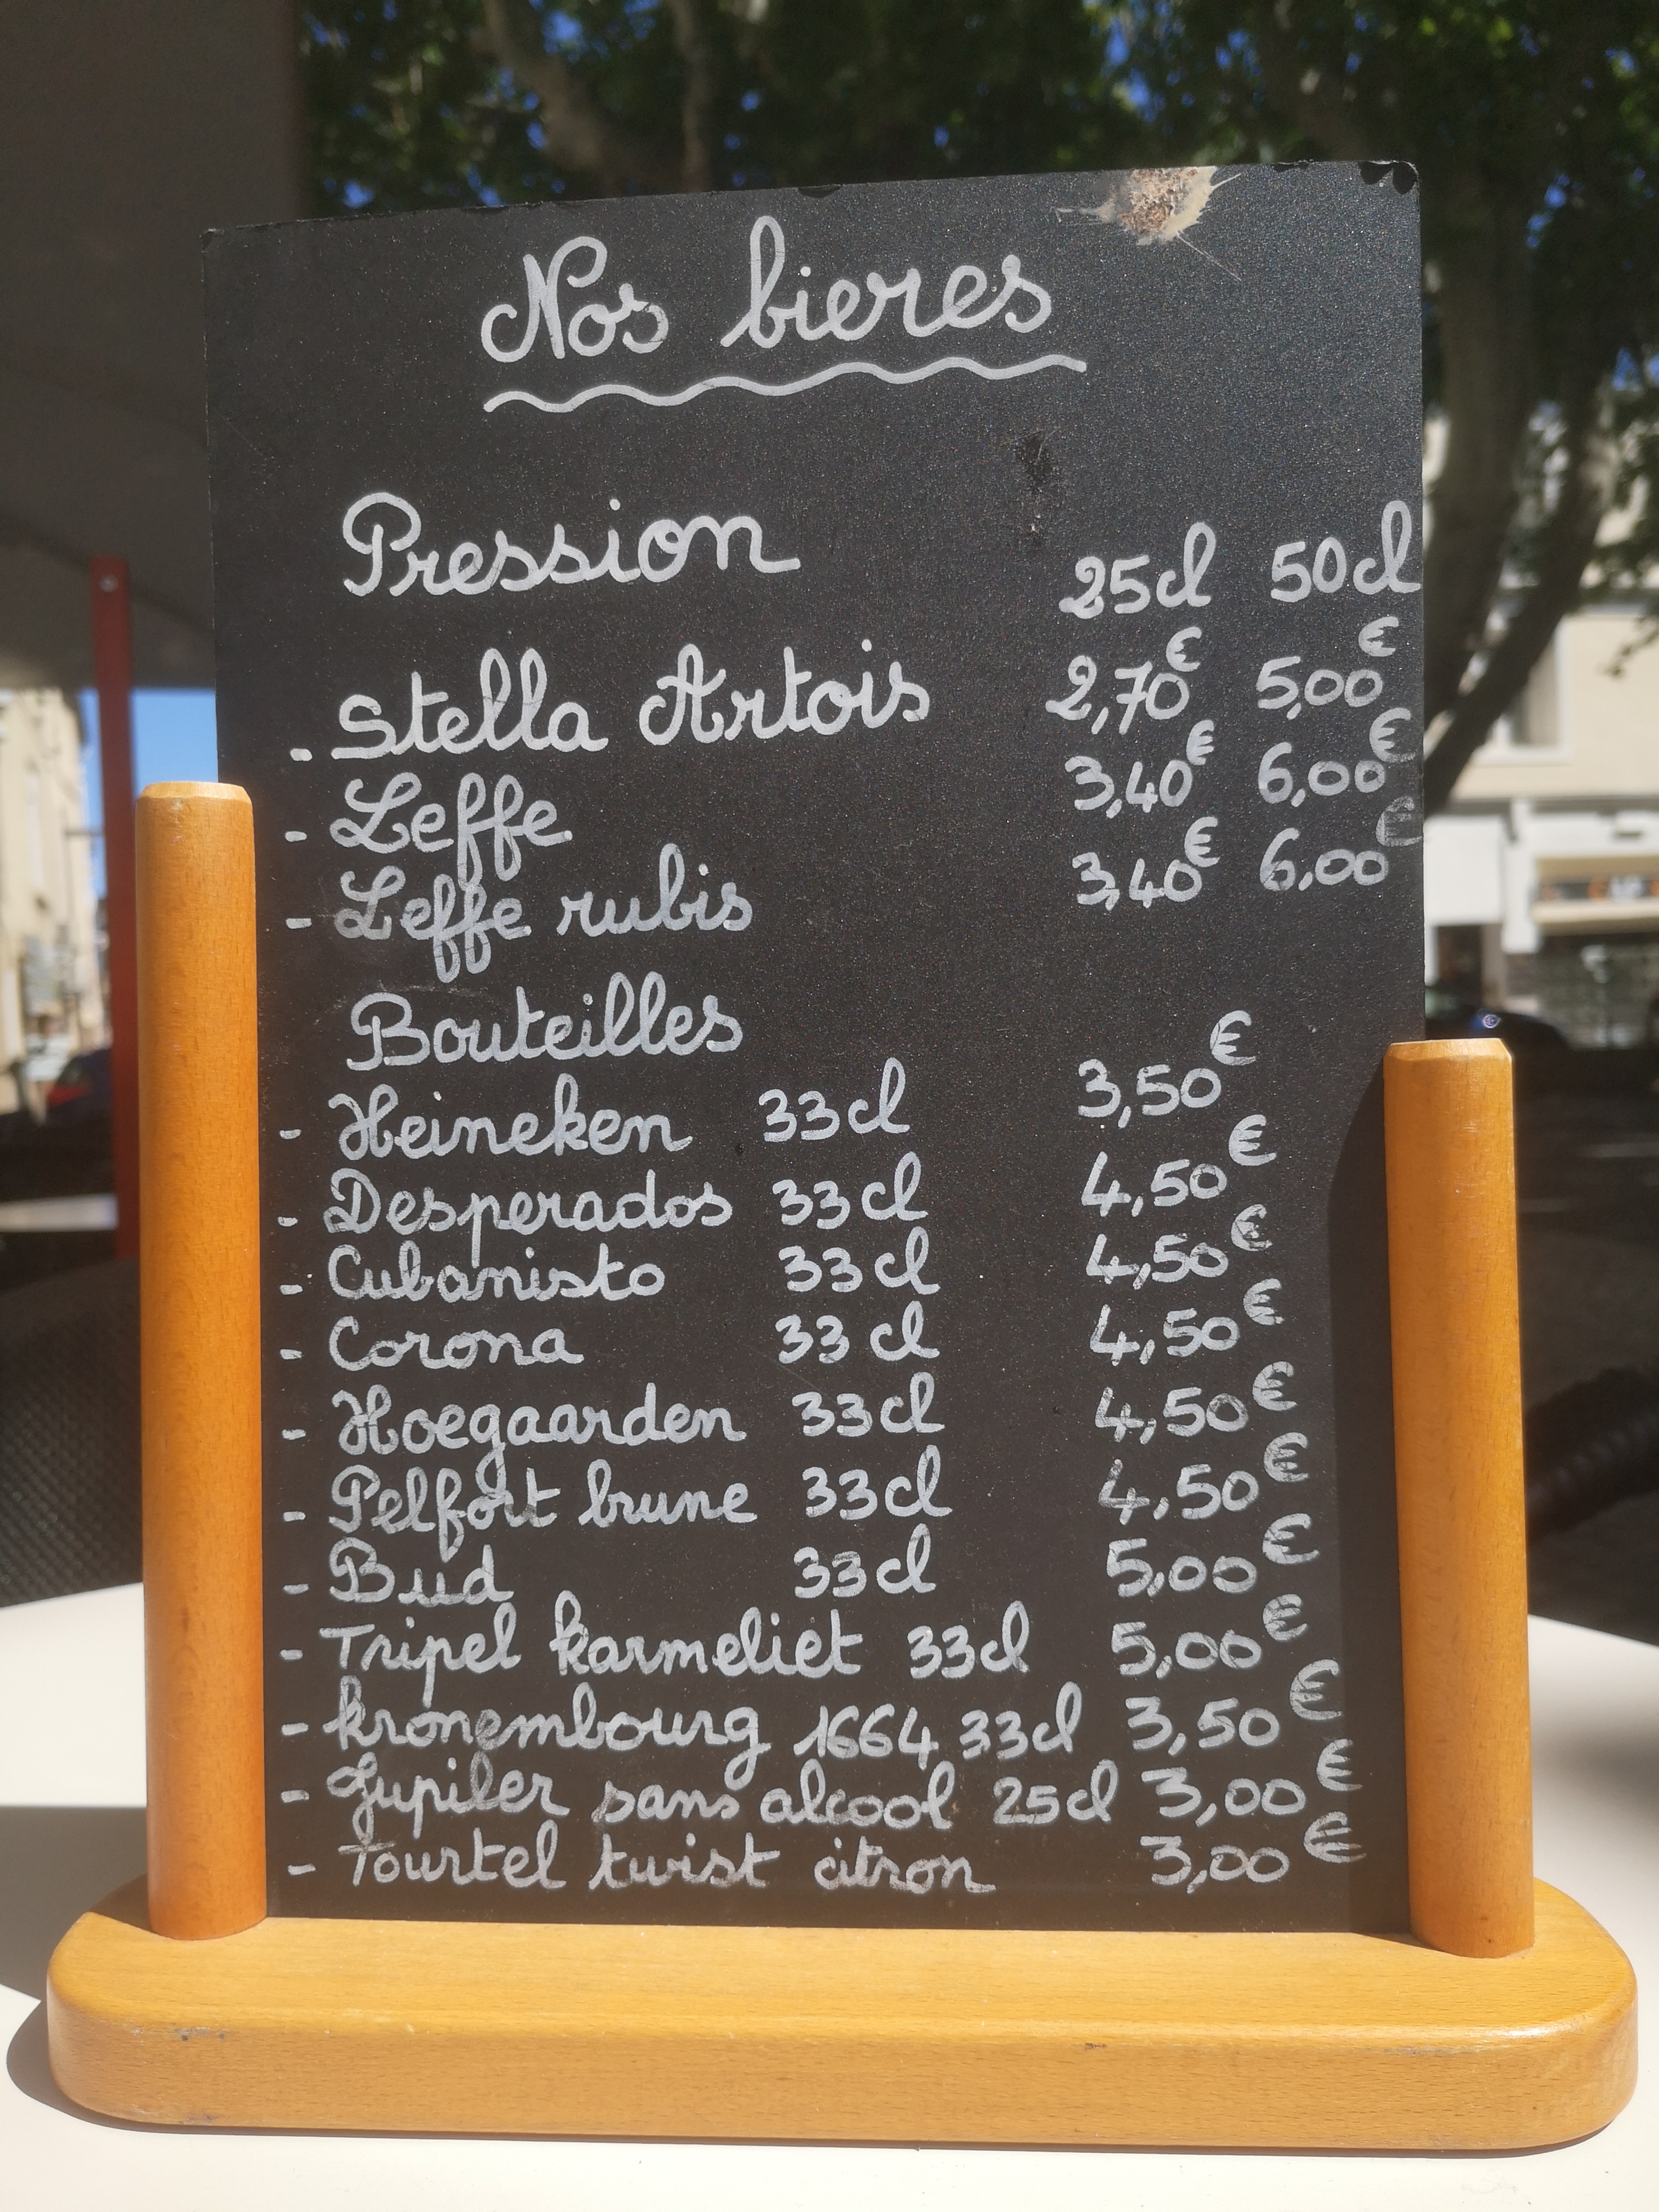 Nos bieres
Pression 25cl 50cl
- Stella Artois 2,70€ 5,00€
- Leffe 3,40€ 6,00€
- Leffe rubis 3,40€ 6,00€
Bouteilles
- Heineken 33cl 3,50€
- Desperados 33cl 4,50€
- Cubanisto 33cl 4,50€
- Corona 33cl 4,50€
- Hoegaarden 33cl 4,50€
- Pelfort brune 33cl 4,50€
- Bud 33cl 5,00€
- Tripel karmeliet 33cl 5,00€
- kronembourg 1664 33cl 3,50€
- Jupiler sans alcool 25cl 3,00€
- Tourtel twist citron 3,00€